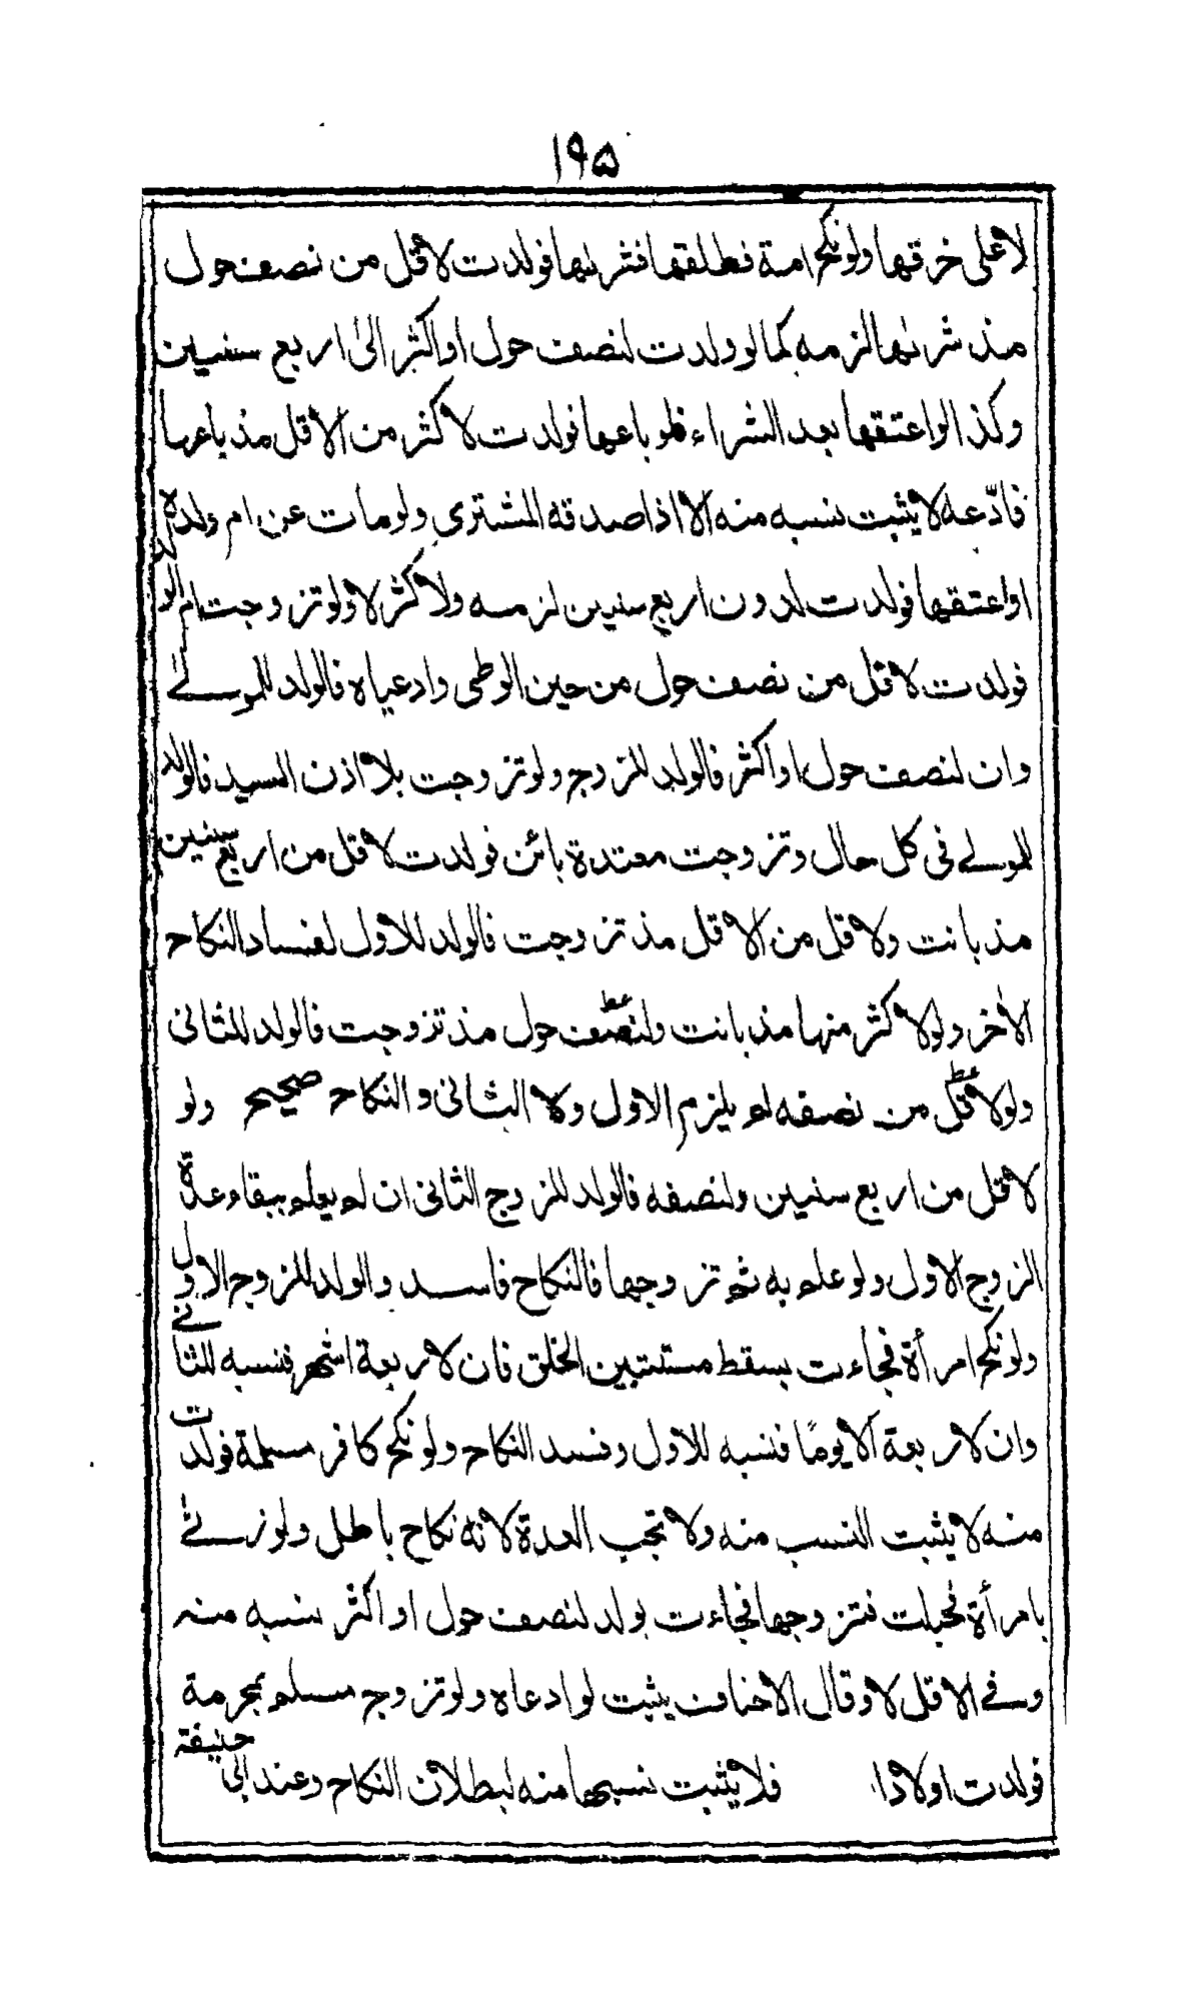 ۱۹۵
لا على خرقها ولو نكح امة فطلقها فشرىٰها فولدت لاقل من نصف حول
مذ شرىٰها لزمه كما لو ولدت لنصف حول او اكثر الىٰ اربع سنين
وكذا لو اعتقها بعد الشراء فلو باعها فولدت لاكثر من الاقل مذ باعها
فادّعه لا يثبت نسبه منه الا اذا صدقه المشترى ولو مات عن ام ولده
او اعتقها فولدت لدون اربع سنين لزمه ولاكثر لا ولو تزوجت ام الولد
فولدت لاقل من نصف حول من حين الوطى وادعياه فالولد للمولے
وان لنصف حول او اكثر فالولد للزوج ولو تزوجت بلا اذن السيد فالولد
للمولے فى كل حال وتزوجت معتدة بائن فولدت لاقل من اربع سنين
مذ بانت ولاقل من الاقل مذ تزوجت فالولد للاول لفساد النكاح
الاٰخر ولو لاكثر منها مذ بانت ولنصف حول مذ تزوجت فالولد للثانى
ولو لاقل من نصفه لم يلزم الاول ولا الثانى والنكاح صحيح ولو
لاقل من اربع سنين ولنصفه فالولد للزوج الثانى ان لم يعلم ببقاء عدة
الزوج الاول ولو علم به ثم تزوجها فالنكاح فاسد والولد للزوج الاول
ولو نكح امرأة فجاءت بسقط مستبين الخلق فان لاربعة اشهر فنسبه للثانے
وان لاربعة الا يومًا فنسبه للاول وفسد النكاح ولو نكح كافر مسلمة فولدت
منه لا يثبت النسب منه ولا تجب العدة لانه نكاح باطل ولو زنےٰ
بامرأة فحبلت فتزوجها فجاءت بولد لنصف حول او اكثر نسبه منه
وفے الاقل لا وقال الاحناف يثبت لو ادعاه ولو تزوج مسلم بمحرمة
فولدت اولادا فلا يثبت نسبها منه لبطلان النكاح وعند ابى حنيفة